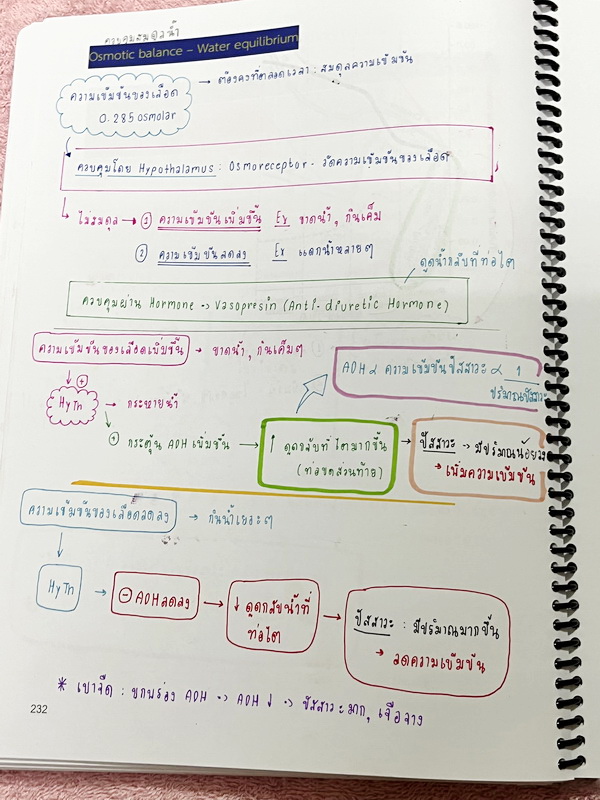 ควบคุมสมดุลน้ำ
Osmotic balance – Water equilibrium
ความเข้มข้นของเลือด → ต้องคงที่ตลอดเวลา : สมดุลความเข้มข้น
0.285 osmolar
ควบคุมโดย Hypothalamus : Osmoreceptor - วัดความเข้มข้นของเลือด
ไม่สมดุล → ① ความเข้มข้นเพิ่มขึ้น Ex ขาดน้ำ, กินเค็ม
② ความเข้มข้นลดลง Ex แดกน้ำหลายๆ
ดูดน้ำกลับที่ท่อไต
ควบคุมผ่าน Hormone → Vasopresin (Anti-diuretic Hormone)
ความเข้มข้นของเลือดเพิ่มขึ้น → ขาดน้ำ, กินเค็มๆ
ADH ∝ ความเข้มข้นปัสสาวะ ∝ 1
ปริมาณปัสสาวะ
HyTh → กระหายน้ำ
กระตุ้น ADH เพิ่มขึ้น → ↑ ดูดกลับที่ไตมากขึ้น
(ท่อขดส่วนท้าย)
→ ปัสสาวะ → มีปริมาณน้อยลง
→ เพิ่มความเข้มข้น
ความเข้มข้นของเลือดลดลง → กินน้ำเยอะๆ
HyTh → ⊖ ADH ลดลง → ↓ ดูดกลับน้ำที่
ท่อไต
→ ปัสสาวะ : มีปริมาณมากขึ้น
→ ลดความเข้มข้น
* เบาจืด : บกพร่อง ADH → ADH ↓ → ปัสสาวะมาก, เจือจาง
232